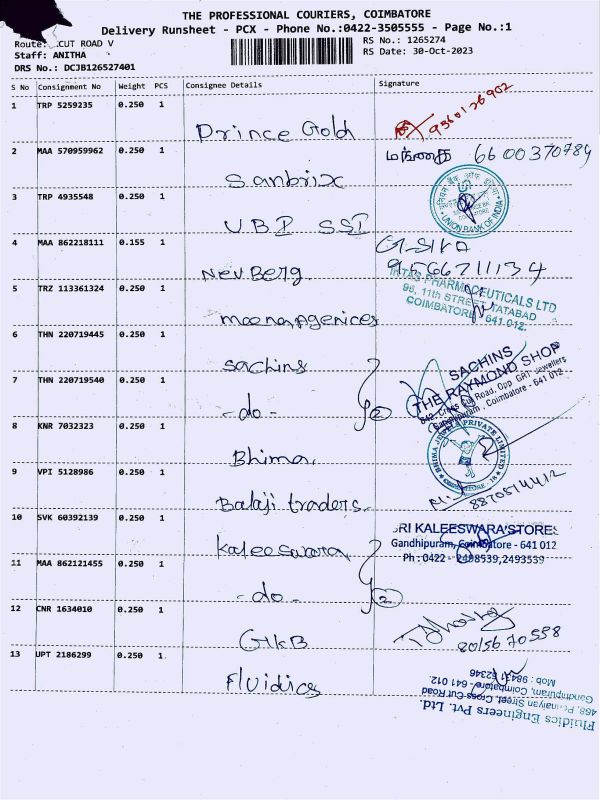 THE PROFESSIONAL COURIERS, COIMBATORE
Delivery Runsheet - PCX - Phone No.:0422-3505555 - Page No.:1
Route: CUT ROAD V
RS No.: 1265274
Staff: ANITHA
RS Date: 30-Oct-2023
DRS No.: DCJB126527401
S No Consignment No Weight PCS Consignee Details Signature
1 TRP 5259235 0.250 1 Prince Gold 9360126902
2 MAA 570959962 0.250 1 Sanbrix மங்கை 6600370789
3 TRP 4935548 0.250 1 UBI SSI
UNION BANK OF INDIA
4 MAA 862218111 0.155 1 Neuberg
9566711134
5 TRZ 113361324 0.250 1 meena Agenices
INTAS PHARMACEUTICALS LTD
96, 11th STREET, TATABAD
COIMBATORE - 641 012.
6 THN 220719445 0.250 1 sachins
7 THN 220719540 0.250 1 -do- 2
SACHINS
THE RAYMOND SHOP
842, Cross Cut Road, Opp. GRT Jewellers
Gandhipuram, Coimbatore - 641 012
8 KNR 7032323 0.250 1 Bhima
BHIMA JEWELS PRIVATE LIMITED
COIMBATORE - 18
9 VPI 5128986 0.250 1 Balaji traders
8870514412
10 SVK 60392139 0.250 1 Kaleeswara
SRI KALEESWARA STORES
Gandhipuram, Coimbatore - 641 012
Ph : 0422 - 2498539,2493539
11 MAA 862121455 0.250 1 -do- 2
12 CNR 1634010 0.250 1 GKB
13 UPT 2186299 0.250 1 Fluidics
Fluidics Engineers Pvt. Ltd.
468, Ponnaiyan Street, Cross Cut Road
Gandhipuram, Coimbatore - 641 012.
Mob : 98431 62346